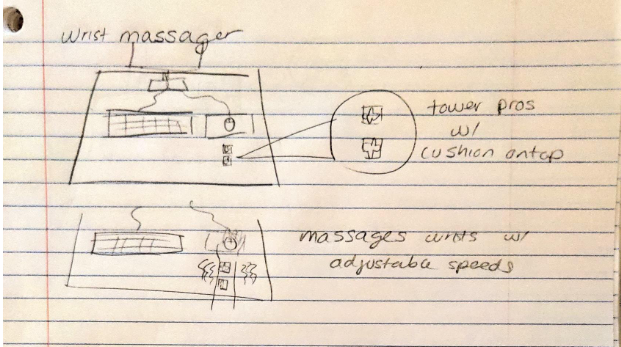 wrist massager
tower pros
w/
cushion ontop
massages wrists w/
adjustable speeds